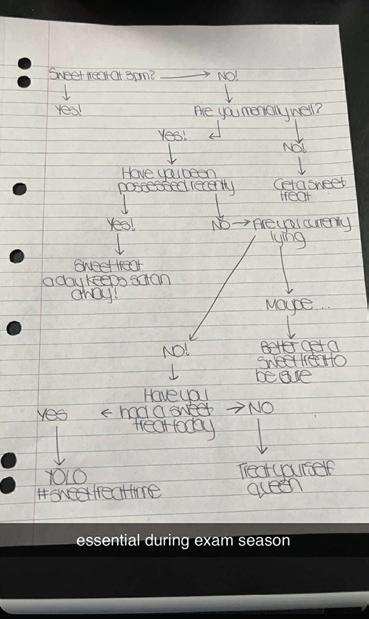 Sweet treat at 3pm? → NO!
Yes!
Are you mentally well?
Yes!
No!
Have you been
possessed recently
Get a sweet
treat
Yes!
NO → Are you currently
lying
Sweet treat
a day keeps satan
away!
Maybe...
NO!
Better get a
sweet treat to
be sure
Have you
Yes ← had a sweet → NO
treat today
YOLO
#sweettreattime
Treat yourself
queen
essential during exam season